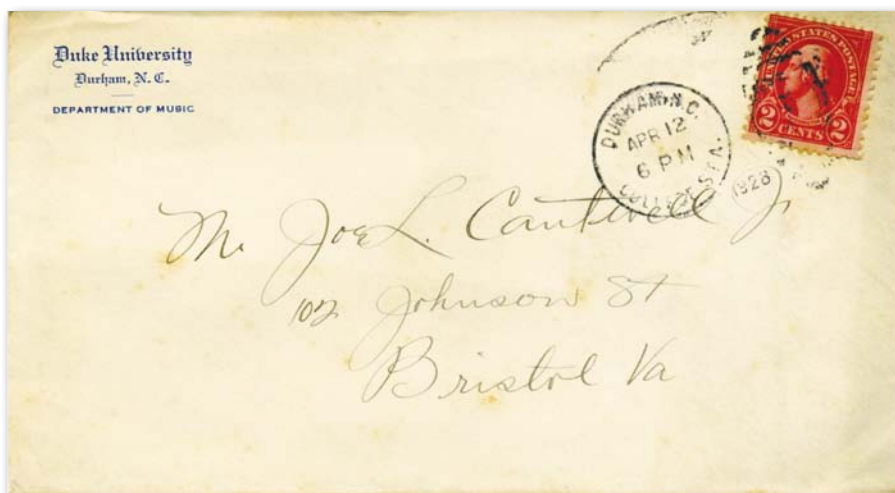 Duke University
Durham, N. C.
DEPARTMENT OF MUSIC
DURHAM, N.C.
APR 12
6 PM
1928
COLLEGE STA.
UNITED STATES POSTAGE
2 CENTS 2
Mr. Joe L. Cantwell Jr
102 Johnson St
Bristol Va